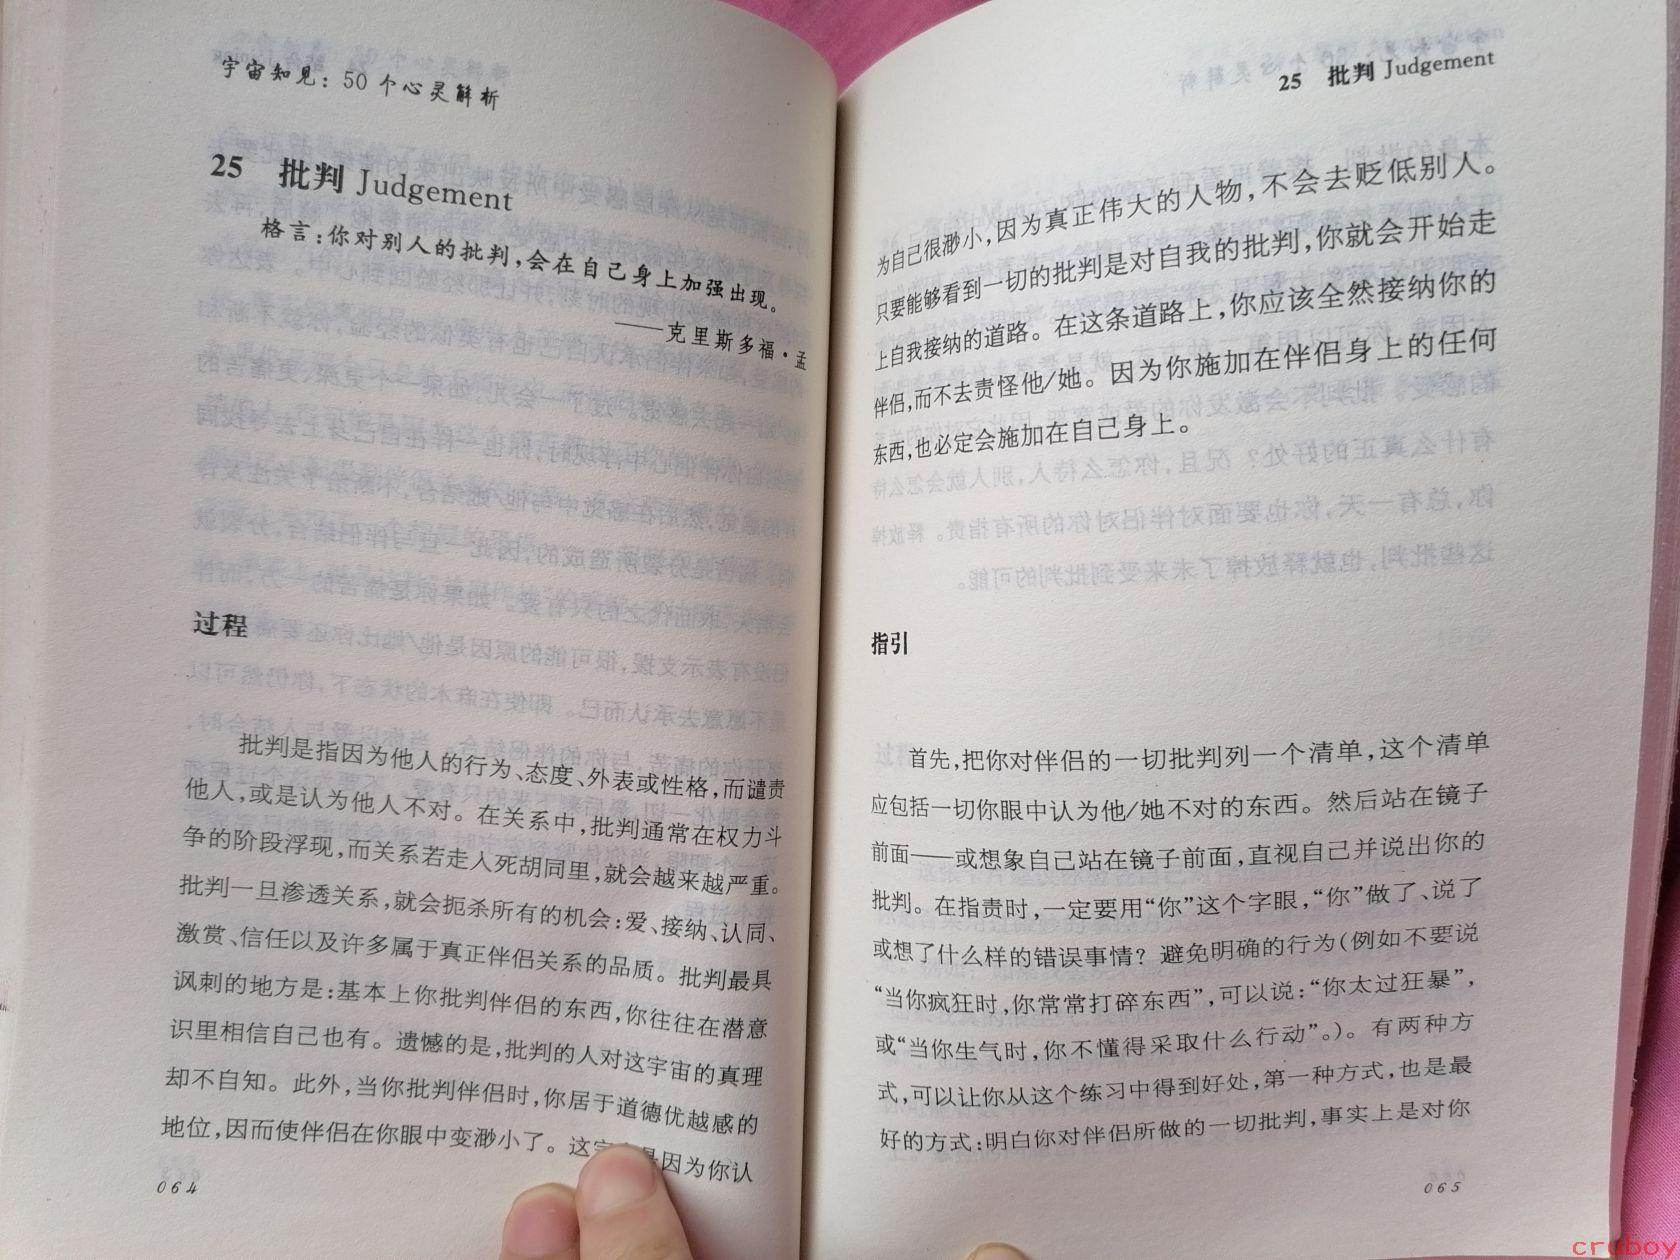 宇宙知见：50个心灵解析
25 批判 Judgement
格言：你对别人的批判，会在自己身上加强出现。
——克里斯多福·孟
过程
批判是指因为他人的行为、态度、外表或性格，而谴责
他人，或是认为他人不对。在关系中，批判通常在权力斗
争的阶段浮现，而关系若走入死胡同里，就会越来越严重。
批判一旦渗透关系，就会扼杀所有的机会：爱、接纳、认同、
激赏、信任以及许多属于真正伴侣关系的品质。批判最具
讽刺的地方是：基本上你批判伴侣的东西，你往往在潜意
识里相信自己也有。遗憾的是，批判的人对这宇宙的真理
却不自知。此外，当你批判伴侣时，你居于道德优越感的
地位，因而使伴侣在你眼中变渺小了。这 是因为你认
064
25 批判 Judgement
为自己很渺小，因为真正伟大的人物，不会去贬低别人。
只要能够看到一切的批判是对自我的批判，你就会开始走
上自我接纳的道路。在这条道路上，你应该全然接纳你的
伴侣，而不去责怪他/她。因为你施加在伴侣身上的任何
东西，也必定会施加在自己身上。
指引
首先，把你对伴侣的一切批判列一个清单，这个清单
应包括一切你眼中认为他/她不对的东西。然后站在镜子
前面——或想象自己站在镜子前面，直视自己并说出你的
批判。在指责时，一定要用“你”这个字眼，“你”做了、说了
或想了什么样的错误事情？避免明确的行为（例如不要说
“当你疯狂时，你常常打碎东西”，可以说：“你太过狂暴”，
或“当你生气时，你不懂得采取什么行动”。）。有两种方
式，可以让你从这个练习中得到好处，第一种方式，也是最
好的方式：明白你对伴侣所做的一切批判，事实上是对你
065
cruboy